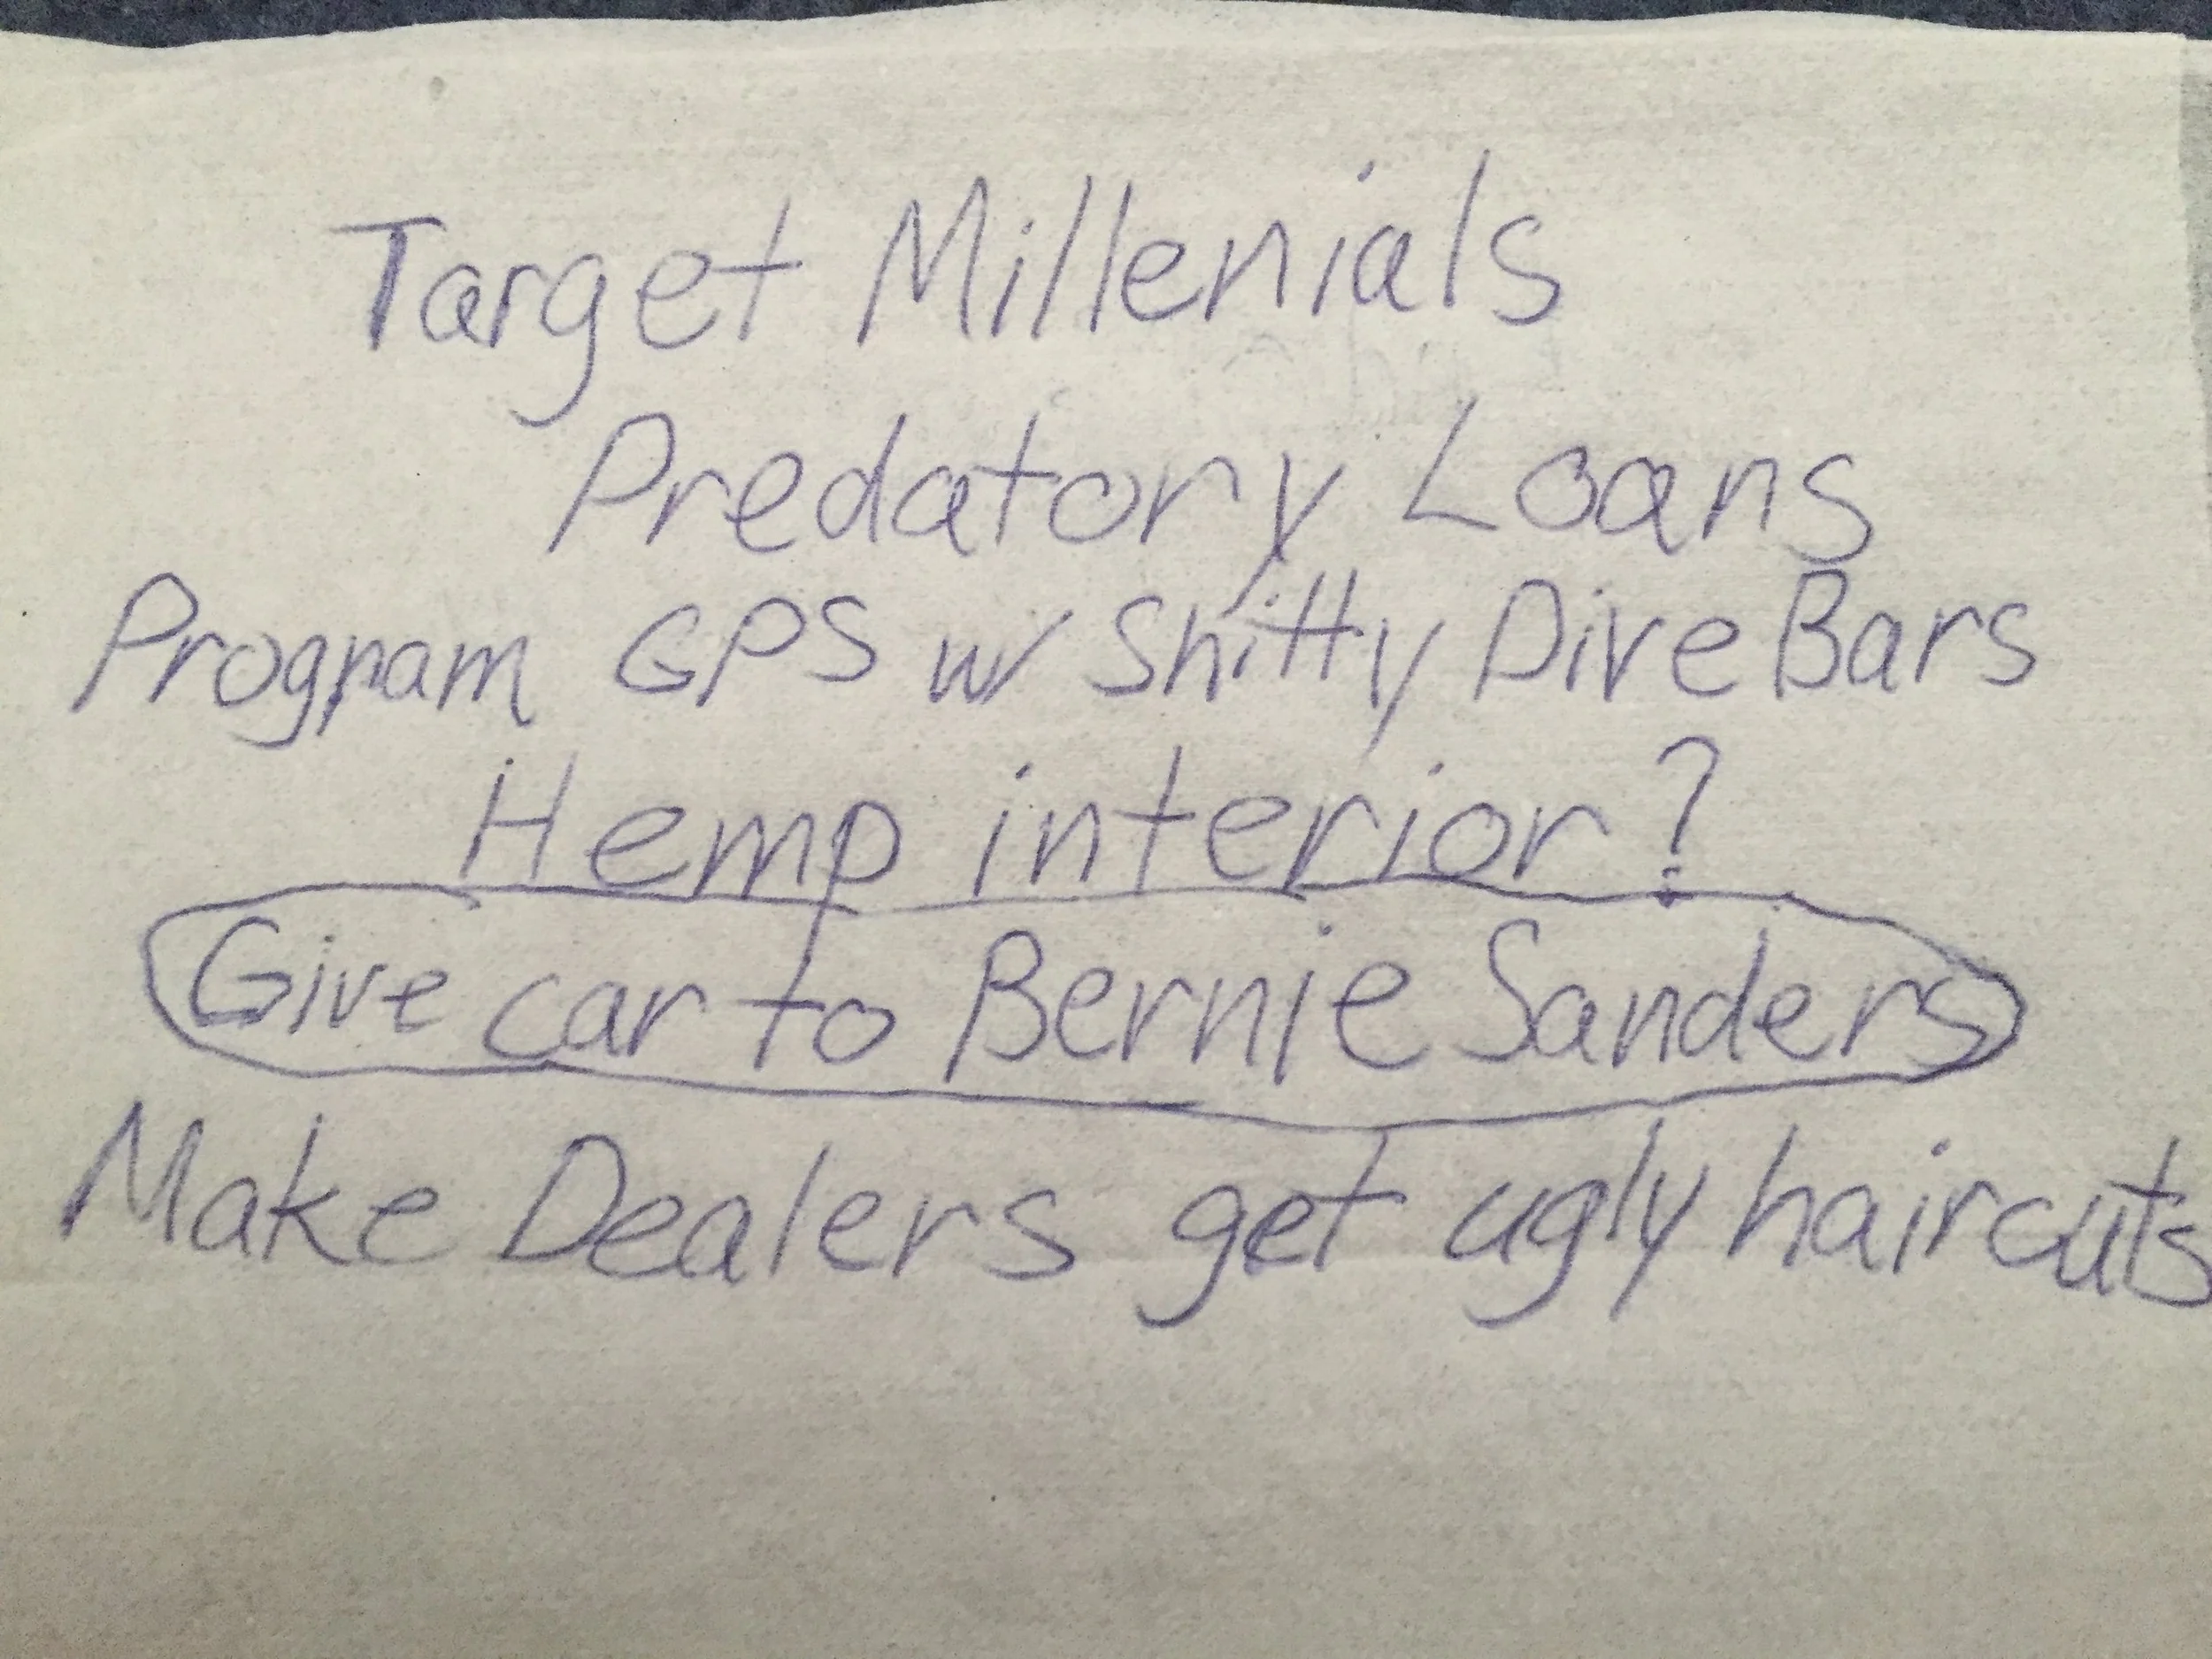 Target Millenials
Predatory Loans
Program GPS w/ Shitty Dive Bars
Hemp interior?
Give car to Bernie Sanders
Make Dealers get ugly haircuts